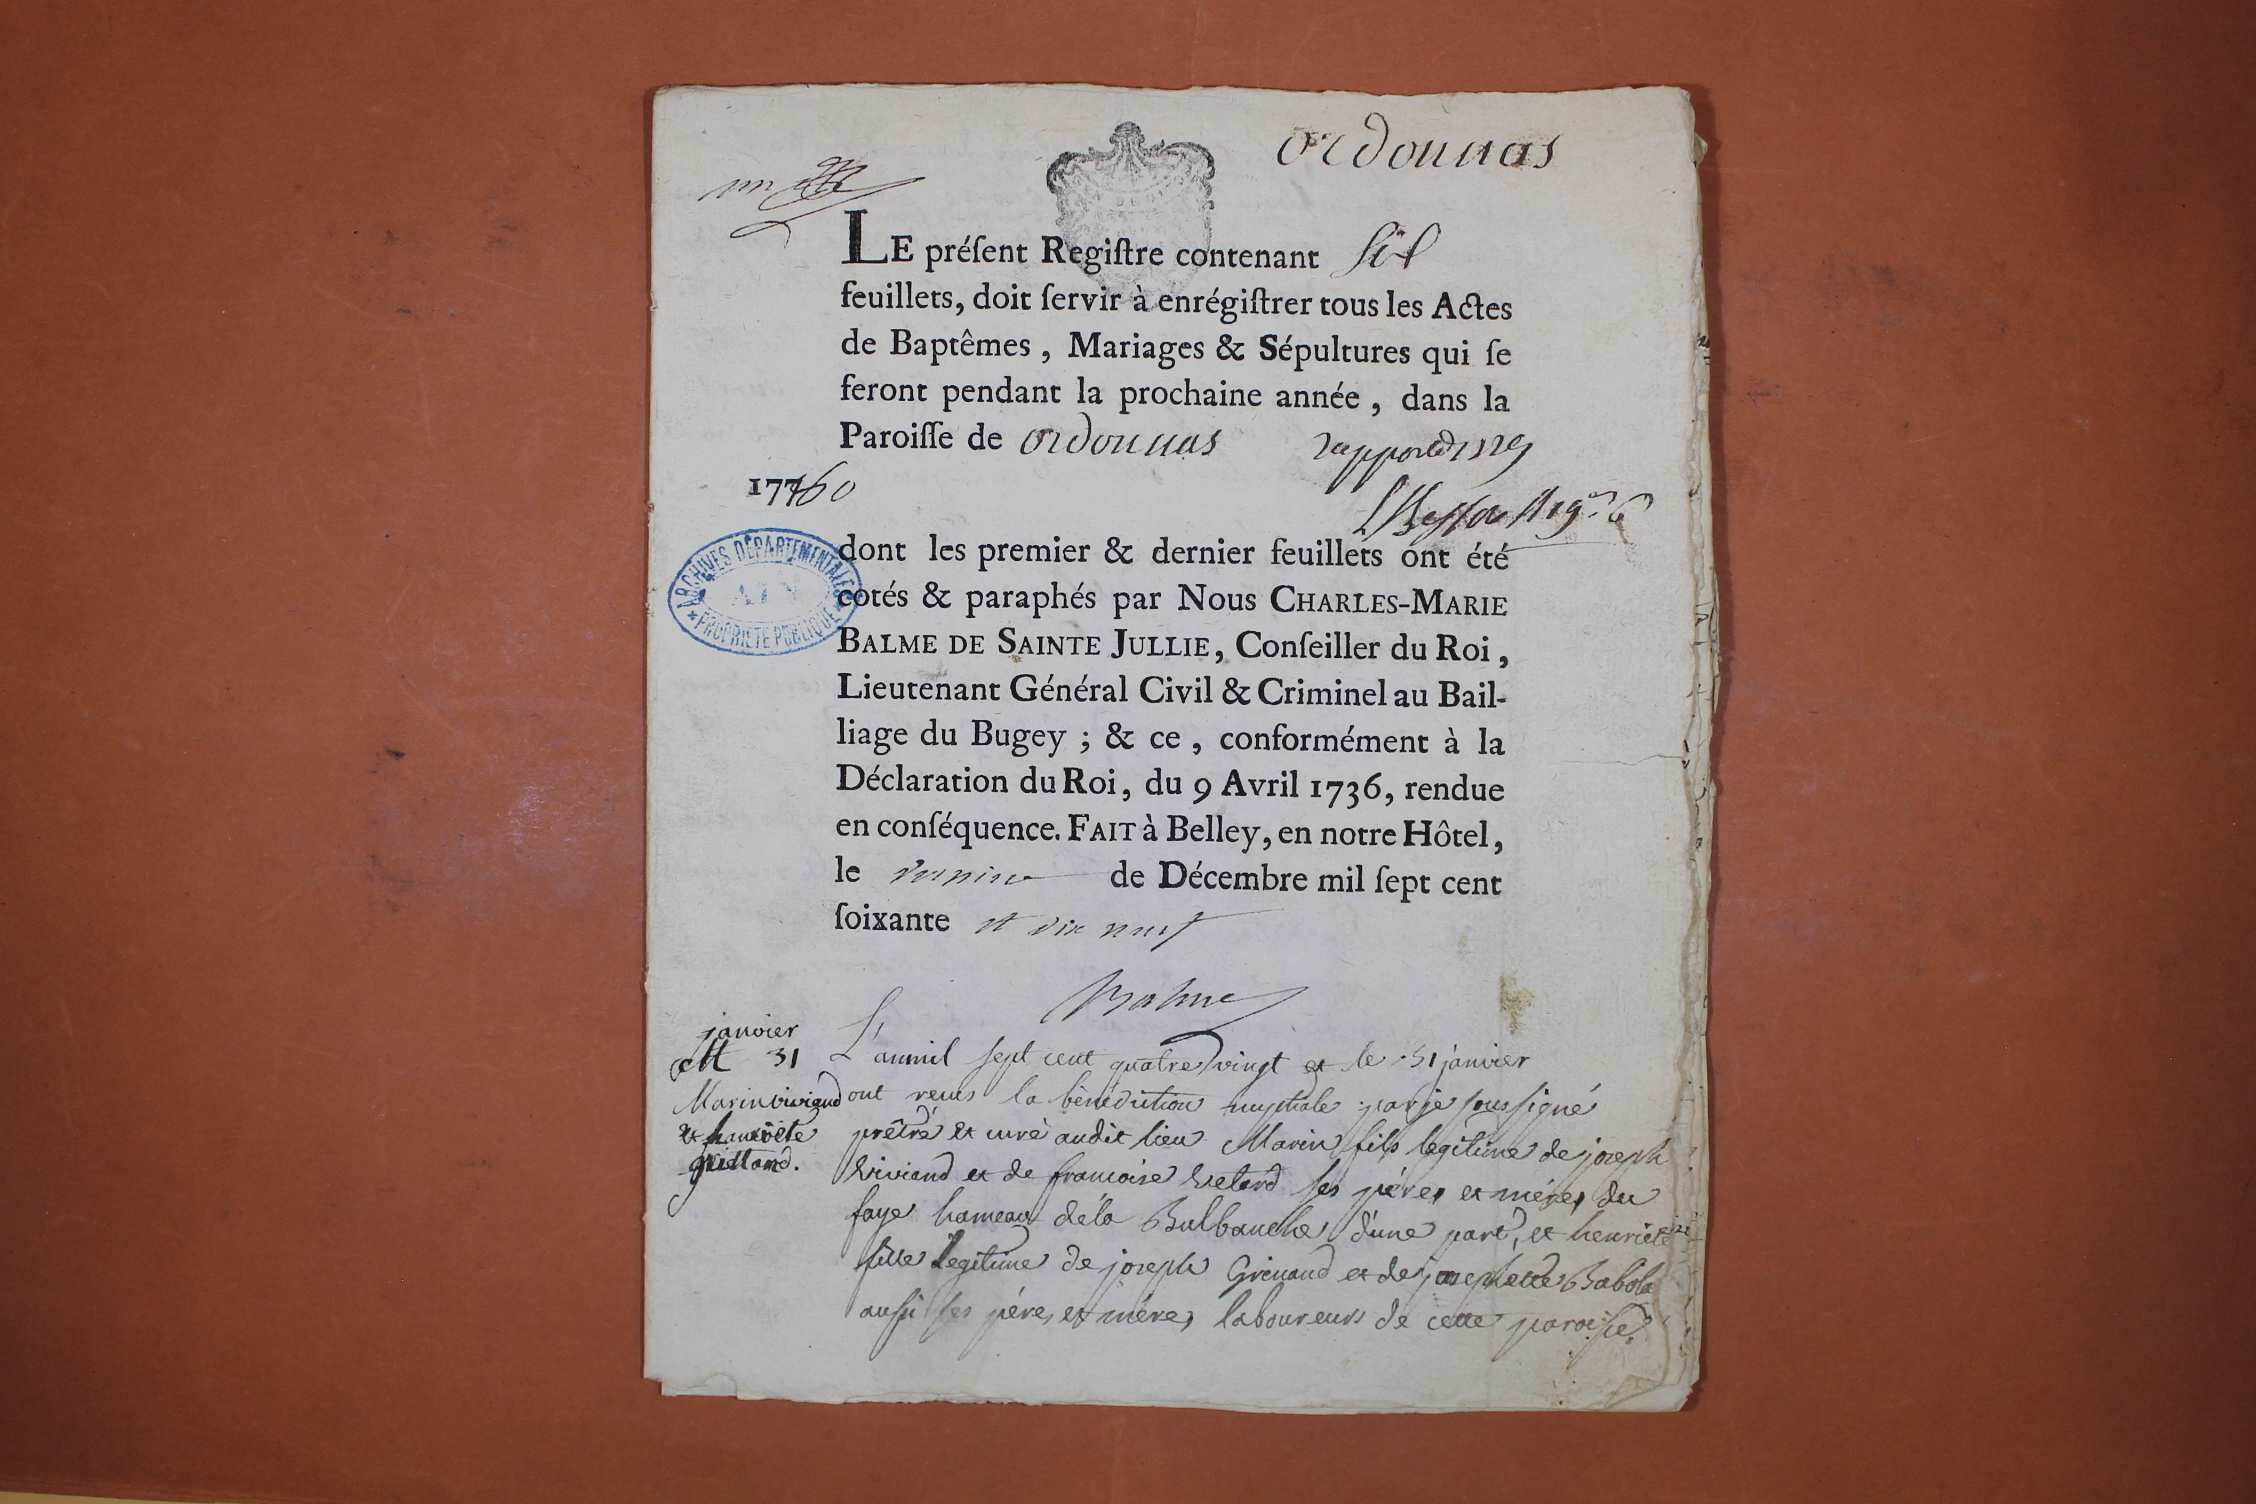 ordonnas
LE préſent Regiſtre contenant ſix
feuillets, doit ſervir à enrégiſtrer tous les Actes
de Baptêmes , Mariages & Sépultures qui ſe
feront pendant la prochaine année , dans la
Paroiſſe de ordonnas
dont les premier & dernier feuillets ont été
cotés & paraphés par Nous CHARLES-MARIE
BALME DE SAINTE JULLIE, Conſeiller du Roi,
Lieutenant Général Civil & Criminel au Bail-
liage du Bugey ; & ce , conformément à la
Déclaration du Roi, du 9 Avril 1736, rendue
en conſéquence. FAIT à Belley, en notre Hôtel,
le dernier de Décembre mil ſept cent
ſoixante et dix neuf
Balme
ARCHIVES DÉPARTEMENTALES
AIN
PROPRIÉTÉ PUBLIQUE
janvier
M 31
Marin viviand
et henriéte
L'an mil sept cent quatre vingt et le 31 janvier
ont reçus la bénédiction nuptiale par je soussigné
prêtre et curé audit lieu Marin fils legitime de joseph
viviand et de francoise ses péres et méres du
faye hameau de la Bulbanche d'une part, et henriéte
fille legitime de joseph Grinand et de josephette Babola
aussi ses péres et méres laboureurs de cette paroisse